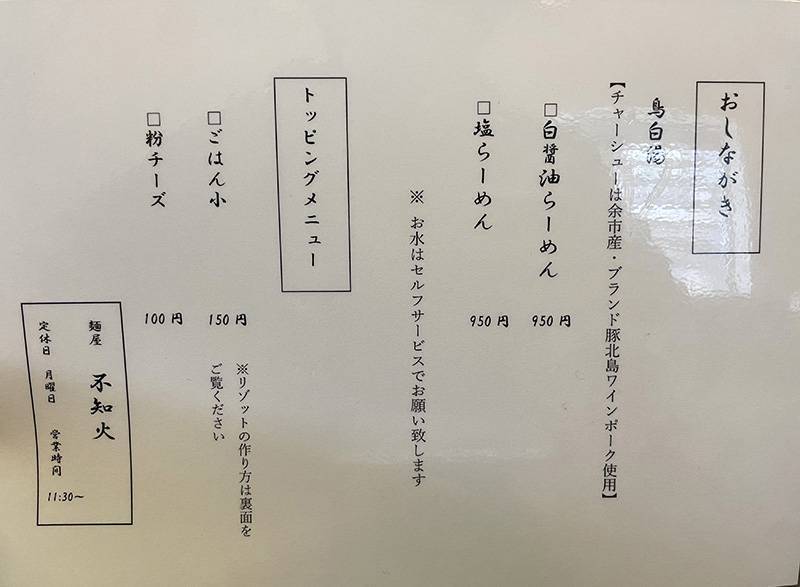 おしながき
鳥白湯
【チャーシューは余市産・ブランド豚北島ワインポーク使用】
□白醤油らーめん 950円
□塩らーめん 950円
※ お水はセルフサービスでお願い致します
トッピングメニュー
□ごはん小 150円
※リゾットの作り方は裏面を
ご覧ください
□粉チーズ 100円
麺屋 不知火
定休日 月曜日 営業時間 11:30〜